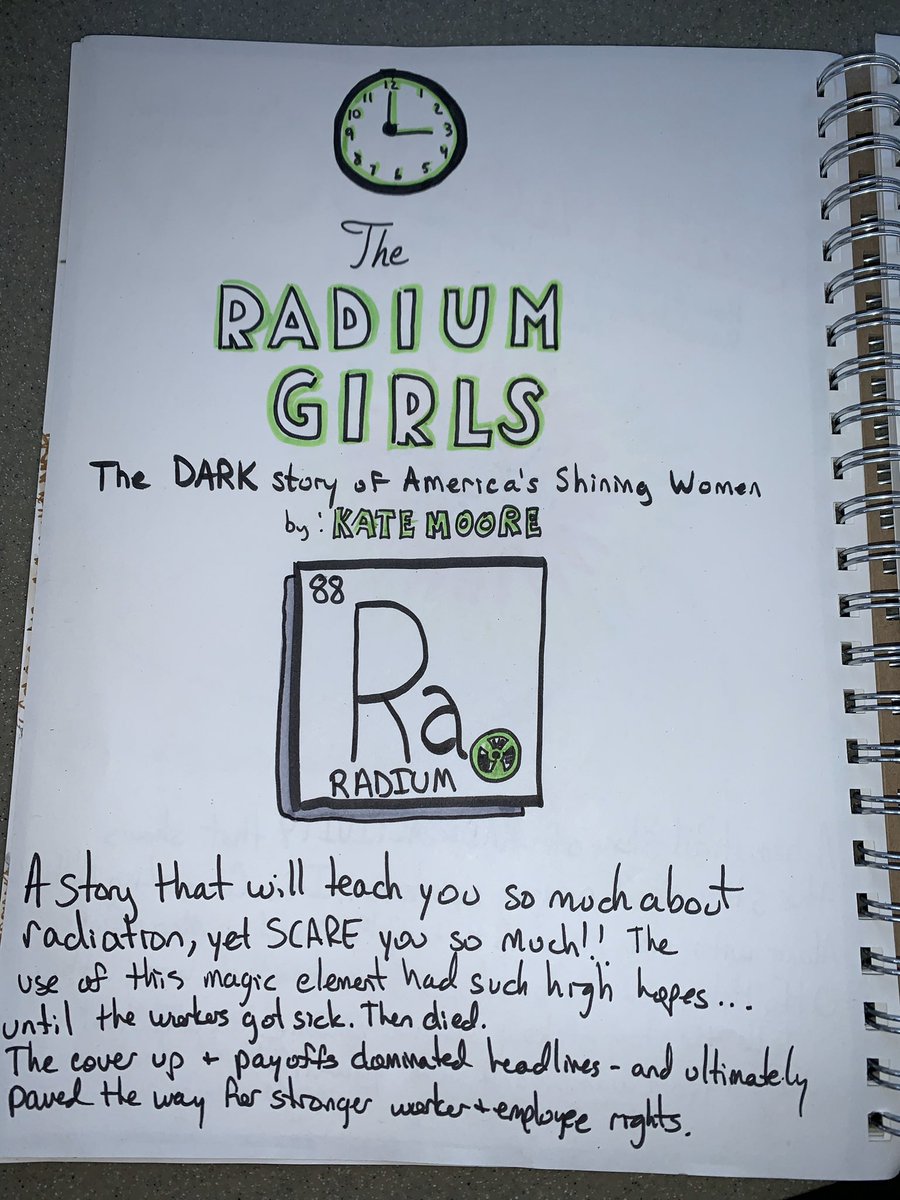 12
11 1
10 2
9 3
8 4
7 6 5
The
RADIUM
GIRLS
The DARK story of America's Shining Women
by: KATE MOORE
88
Ra
RADIUM
A story that will teach you so much about
radiation, yet SCARE you so much!! The
use of this magic element had such high hopes...
until the workers got sick. Then died.
The cover up + payoffs dominated headlines - and ultimately
paved the way for stronger worker + employee rights.